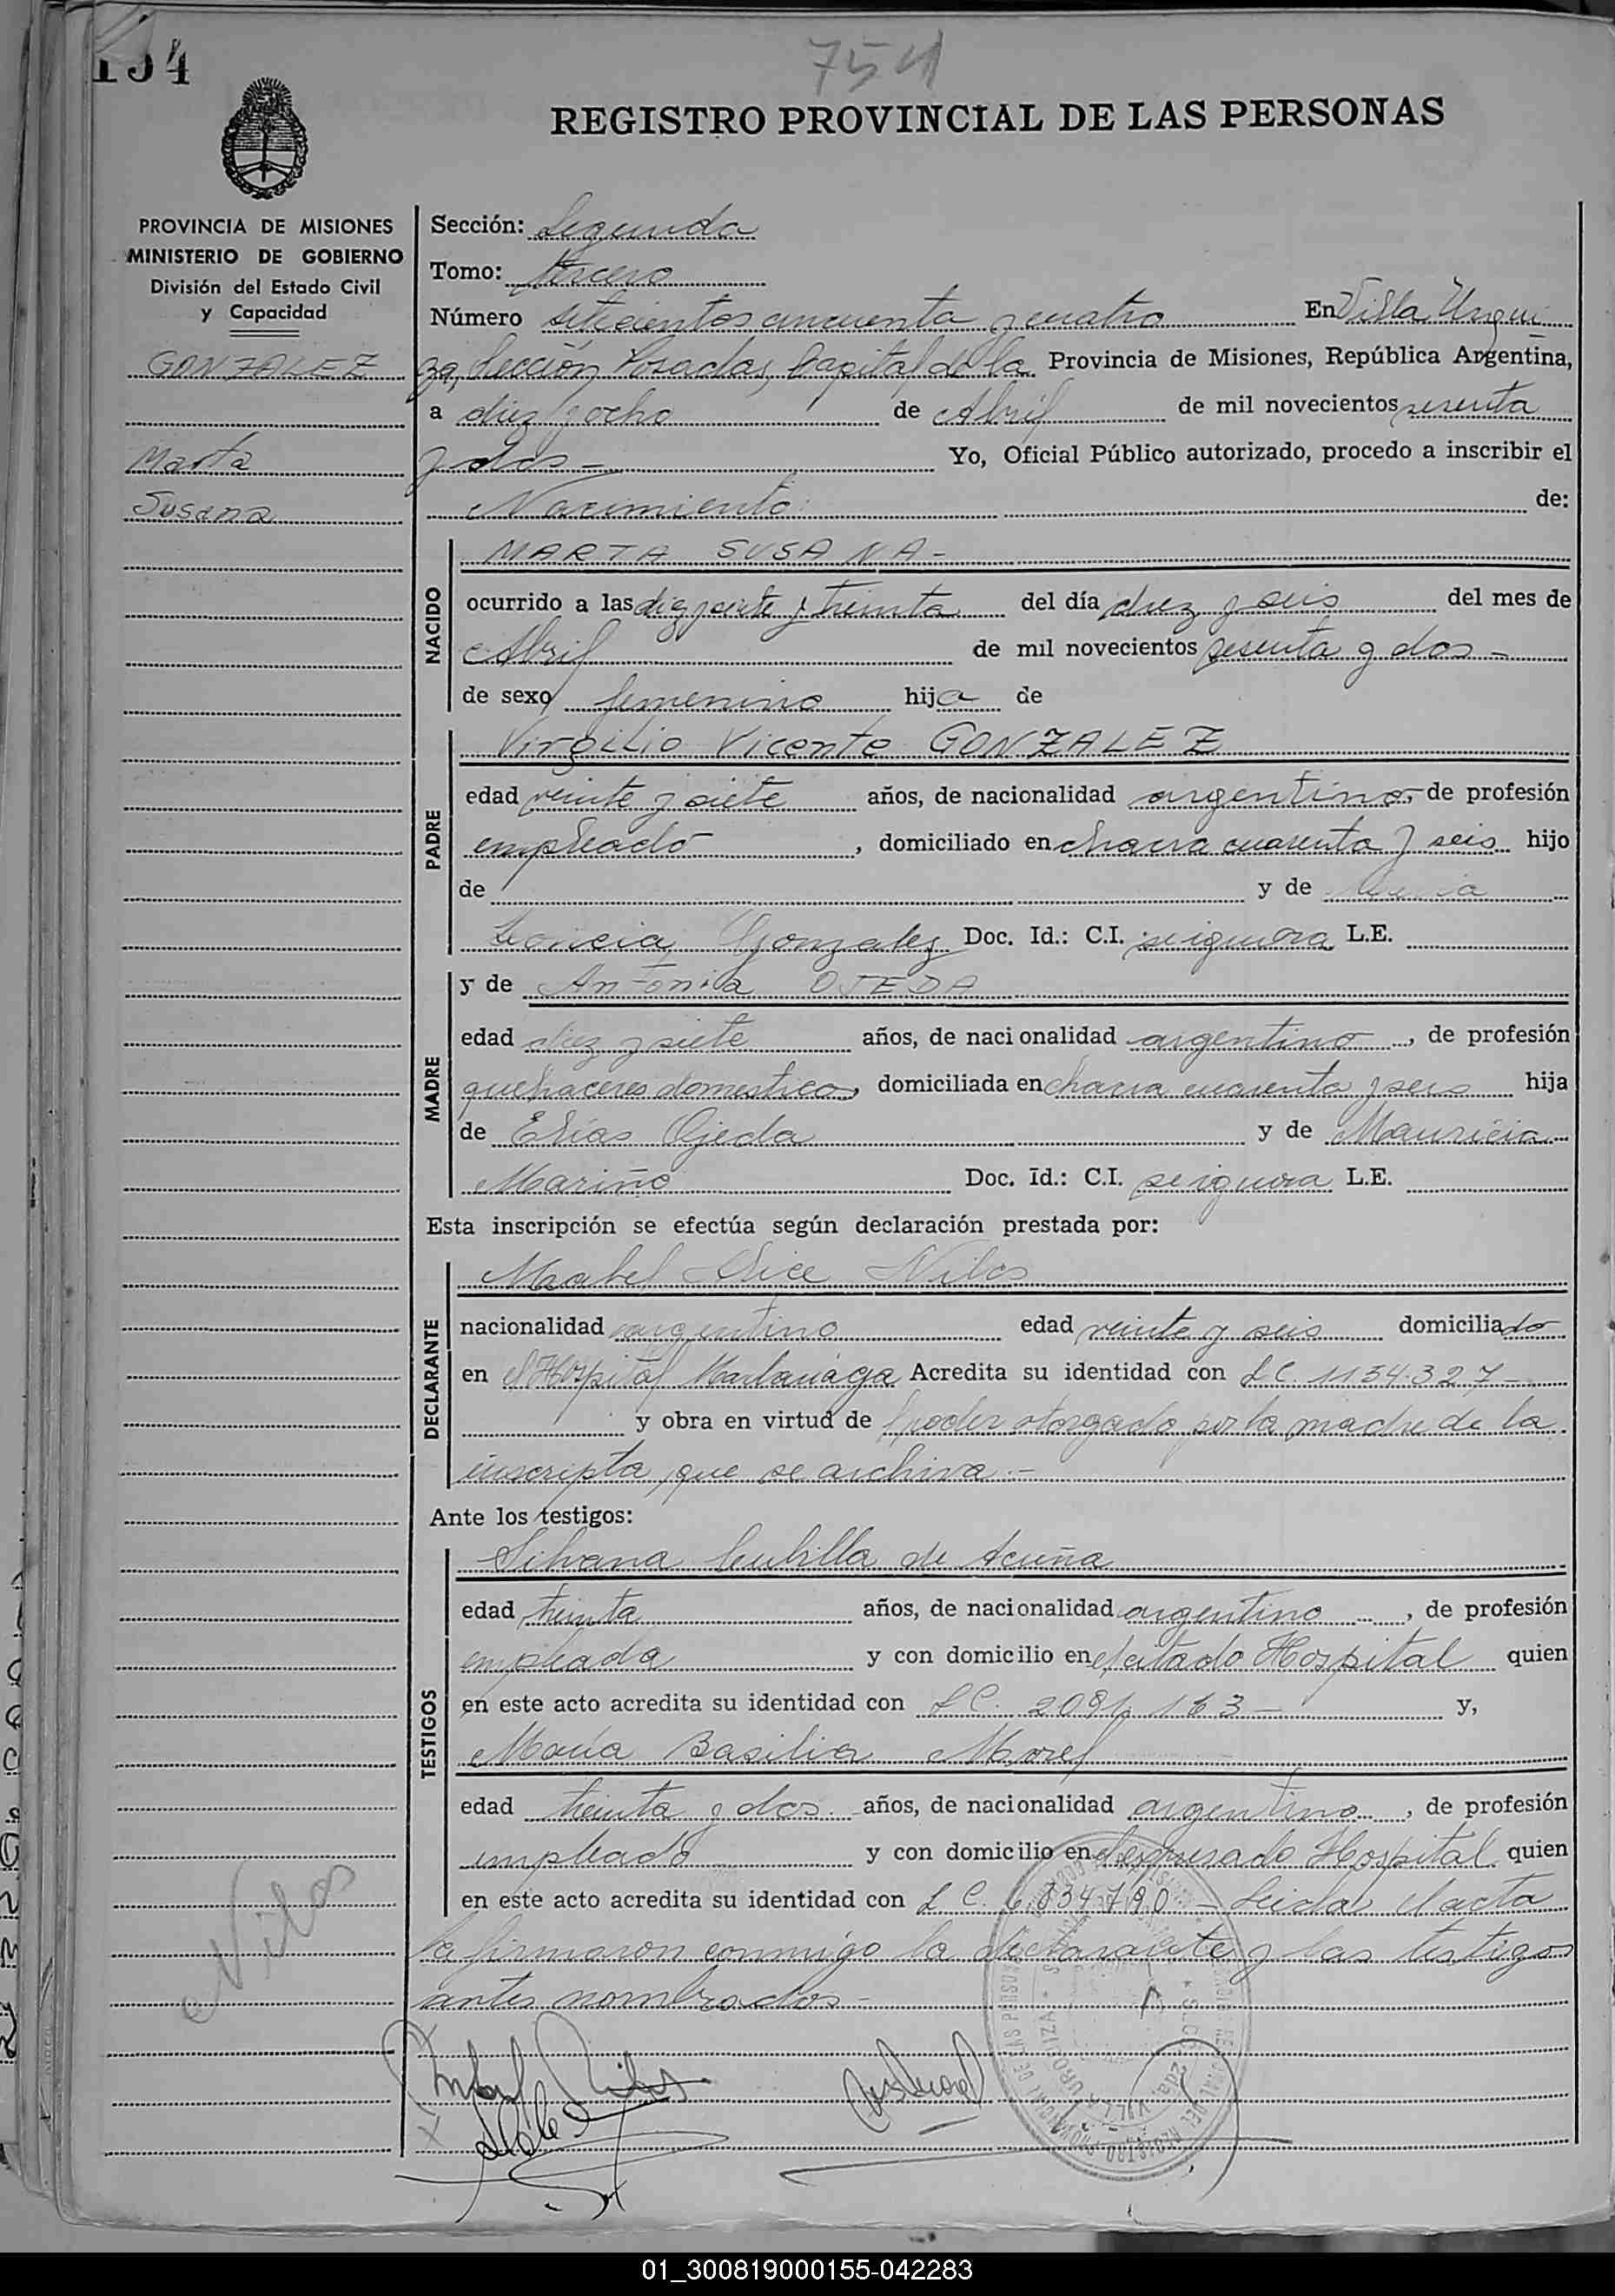 194
754
REGISTRO PROVINCIAL DE LAS PERSONAS
PROVINCIA DE MISIONES
MINISTERIO DE GOBIERNO
División del Estado Civil
y Capacidad
GONZALEZ
Marta
Susana
Sección: Segunda
Tomo: tercero
Número setecientos cincuenta y cuatro En Villa Urqui
za, Sección Posadas, Capital de la Provincia de Misiones, República Argentina,
a diez y ocho de Abril de mil novecientos sesenta
y dos - Yo, Oficial Público autorizado, procedo a inscribir el
Nacimiento de:
NACIDO
MARTA SUSANA -
ocurrido a las diez y siete y treinta del día diez y seis del mes de
Abril de mil novecientos sesenta y dos -
de sexo femenino hija de
PADRE
Virgilio Vicente GONZALEZ
edad veinte y siete años, de nacionalidad argentino, de profesión
empleado , domiciliado en chacra cuarenta y seis hijo
de y de
Gonzalez Doc. Id.: C.I. se ignora L.E.
MADRE
y de Antonia OJEDA
edad diez y siete años, de nacionalidad argentino , de profesión
quehaceres domesticos, domiciliada en chacra cuarenta y seis hija
de Elias Ojeda y de Mauricia
Mariño Doc. Id.: C.I. se ignora L.E.
Esta inscripción se efectúa según declaración prestada por:
DECLARANTE
Mabel Nilos
nacionalidad argentino edad veinte y seis domiciliado
en el Hospital Madariaga Acredita su identidad con L.C. 1154.327 -
y obra en virtud de poder otorgado por la madre de la
inscripta, que se archiva.-
Ante los testigos:
TESTIGOS
Silvana Cubilla de Acuña
edad treinta años, de nacionalidad argentino , de profesión
empleada y con domicilio en el citado Hospital quien
en este acto acredita su identidad con L.C. 163 - y,
María Basilia Morel
edad treinta y dos años, de nacionalidad argentino , de profesión
empleado y con domicilio en el expresado Hospital quien
en este acto acredita su identidad con L.C. 6.834.790 - Leída el acta
la firmaron conmigo la declarante y las testigos
antes nombrados -
Nilos
01_300819000155-042283